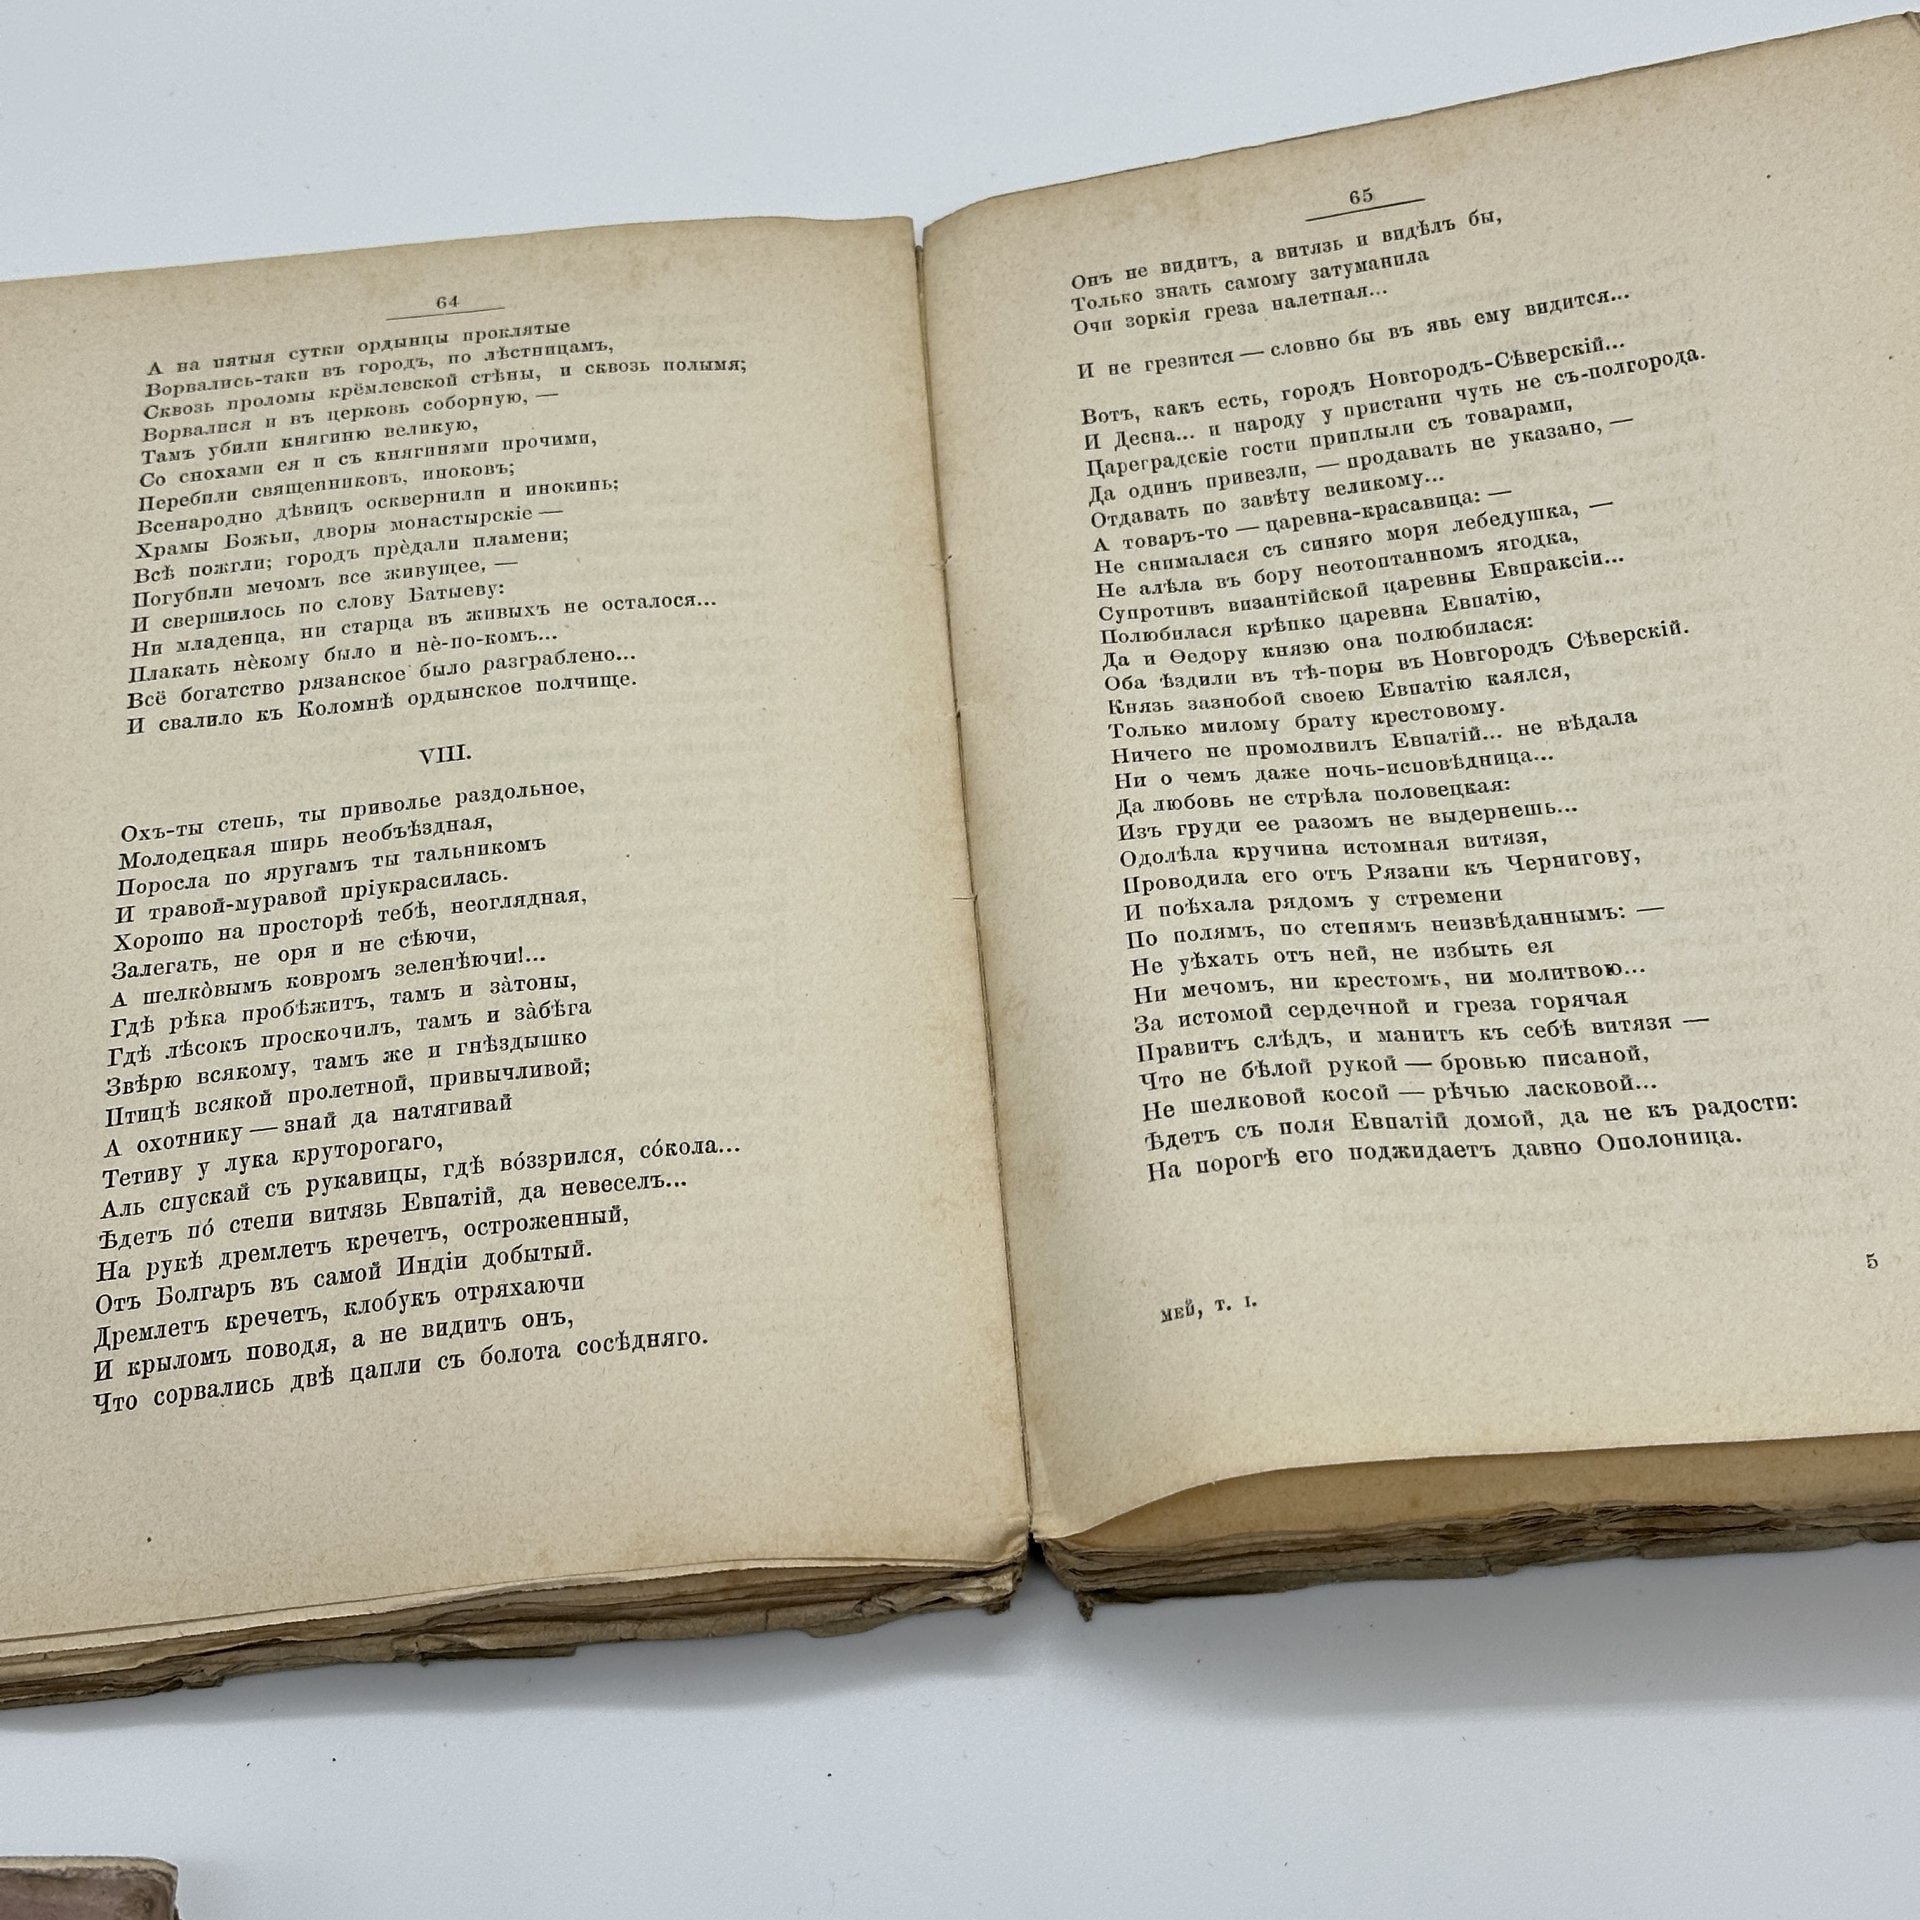 64
А на пятыя сутки ордынцы проклятые
Ворвались-таки въ городъ, по лѣстницамъ,
Сквозь проломы крёмлевской стѣны, и сквозь полымя;
Ворвалися и въ церковь соборную, —
Тамъ убили княгиню великую,
Со снохами ея и съ княгинями прочими,
Перебили священниковъ, иноковъ;
Всенародно дѣвицъ осквернили и инокинь;
Храмы Божьи, дворы монастырскіе —
Всѣ пожгли; городъ прѐдали пламени;
Погубили мечомъ все живущее, —
И свершилось по слову Батыеву:
Ни младенца, ни старца въ живыхъ не осталося...
Плакать нѐкому было и нѐ-по-комъ...
Всё богатство рязанское было разграблено...
И свалило къ Коломнѣ ордынское полчище.
VIII.
Охъ-ты степь, ты приволье раздольное,
Молодецкая ширь необъѣздная,
Поросла по яругамъ ты тальникомъ
И травой-муравой пріукрасилась.
Хорошо на просторѣ тебѣ, неоглядная,
Залегать, не оря и не сѣючи,
А шелко̀вымъ ковромъ зеленѣючи!...
Гдѣ рѣка пробѣжитъ, тамъ и за̀тоны,
Гдѣ лѣсокъ проскочилъ, тамъ и за̀бѣга
Звѣрю всякому, тамъ же и гнѣздышко
Птицѣ всякой пролетной, привычливой;
А охотнику — знай да натягивай
Тетиву у лука круторогаго,
Аль спускай съ рукавицы, гдѣ во́ззрился, со́кола...
Ѣдетъ по́ степи витязь Евпатій, да невеселъ...
На рукѣ дремлетъ кречетъ, остроженный,
Отъ Болгаръ въ самой Индіи добытый.
Дремлетъ кречетъ, клобукъ отряхаючи
И крыломъ поводя, а не видитъ онъ,
Что сорвались двѣ цапли съ болота сосѣдняго.
65
Онъ не видитъ, а витязь и видѣлъ бы,
Только знать самому затуманила
Очи зоркія греза налетная...
И не грезится — словно бы въ явь ему видится...
Вотъ, какъ есть, городъ Новгородъ-Сѣверскій...
И Десна... и народу у пристани чуть не съ-полгорода.
Цареградскіе гости приплыли съ товарами,
Да одинъ привезли, — продавать не указано, —
Отдавать по завѣту великому...
А товаръ-то — царевна-красавица: —
Не снималася съ синяго моря лебедушка, —
Не алѣла въ бору неотоптанномъ ягодка,
Супротивъ византійской царевны Евпраксіи...
Полюбилася крѣпко царевна Евпатію,
Да и Ѳедору князю она полюбилася:
Оба ѣздили въ тѣ-поры въ Новгородъ Сѣверскій.
Князь зазнобой своею Евпатію каялся,
Только милому брату крестовому.
Ничего не промолвилъ Евпатій... не вѣдала
Ни о чемъ даже ночь-исповѣдница...
Да любовь не стрѣла половецкая:
Изъ груди ее разомъ не выдернешь...
Одолѣла кручина истомная витязя,
Проводила его отъ Рязани къ Чернигову,
И поѣхала рядомъ у стремени
По полямъ, по степямъ неизвѣданнымъ: —
Не уѣхать отъ ней, не избыть ея
Ни мечомъ, ни крестомъ, ни молитвою...
За истомой сердечной и греза горячая
Правитъ слѣдъ, и манитъ къ себѣ витязя —
Что не бѣлой рукой — бровью писаной,
Не шелковой косой — рѣчью ласковой...
Ѣдетъ съ поля Евпатій домой, да не къ радости:
На порогѣ его поджидаетъ давно Ополоница.
МЕЙ, Т. I.
5